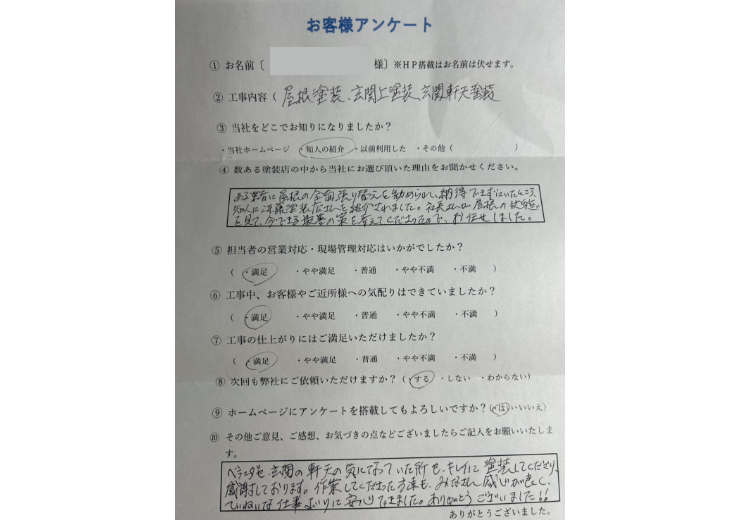 お客様アンケート
① お名前〔 様〕※HP搭載はお名前は伏せます。
② 工事内容( 屋根塗装、玄関上塗装、玄関軒天塗装
③ 当社をどこでお知りになりましたか?
・当社ホームページ ・知人の紹介 ・以前利用した ・その他( )
④ 数ある塗装店の中から当社にお選び頂いた理由をお聞かせください。
ある業者に屋根の全面張り替えを勧められ、納得できずにいたところ、
知人に 塗装店さんを紹介されました。社長さんは屋根の状態
を見て、今できる最善の策を考えてくださったので、お任せしました。
⑤ 担当者の営業対応・現場管理対応はいかがでしたか?
( ・満足 ・やや満足 ・普通 ・やや不満 ・不満 )
⑥ 工事中、お客様やご近所様への気配りはできていましたか?
( ・満足 ・やや満足 ・普通 ・やや不満 ・不満 )
⑦ 工事の仕上がりにはご満足いただけましたか?
( ・満足 ・やや満足 ・普通 ・やや不満 ・不満 )
⑧ 次回も弊社にご依頼いただけますか?(・する ・しない ・わからない)
⑨ ホームページにアンケートを搭載してもよろしいですか?(・はい・いいえ)
⑩ その他ご意見、ご感想、お気づきの点などございましたらご記入をお願いいたしま
す。
ベランダや、玄関の軒天の気になっていた所も、キレイに塗装してくださり、
感謝しております。作業してくださった方達も、みなさん感じが良く、
ていねいな仕事ぶりに安心できました。ありがとうございました!!
ありがとうございました。